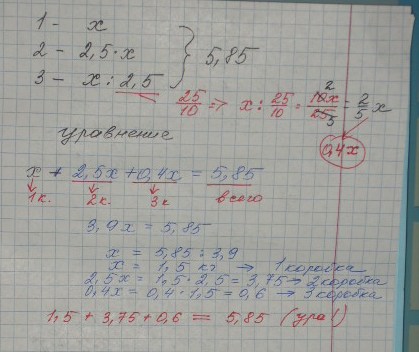 1 - x
2 - 2,5·x
3 - x : 2,5
} 5,85
25/10 => x : 25/10 = 10x/25 = 2/5 x
2
5
0,4x
уравнение
x + 2,5x + 0,4x = 5,85
1к. 2к. 3к всего
3,9x = 5,85
x = 5,85 : 3,9
x = 1,5 кг → 1 коробка
2,5x = 1,5·2,5 = 3,75 → 2 коробка
0,4x = 0,4·1,5 = 0,6 → 3 коробка
1,5 + 3,75 + 0,6 = 5,85 (ура!)